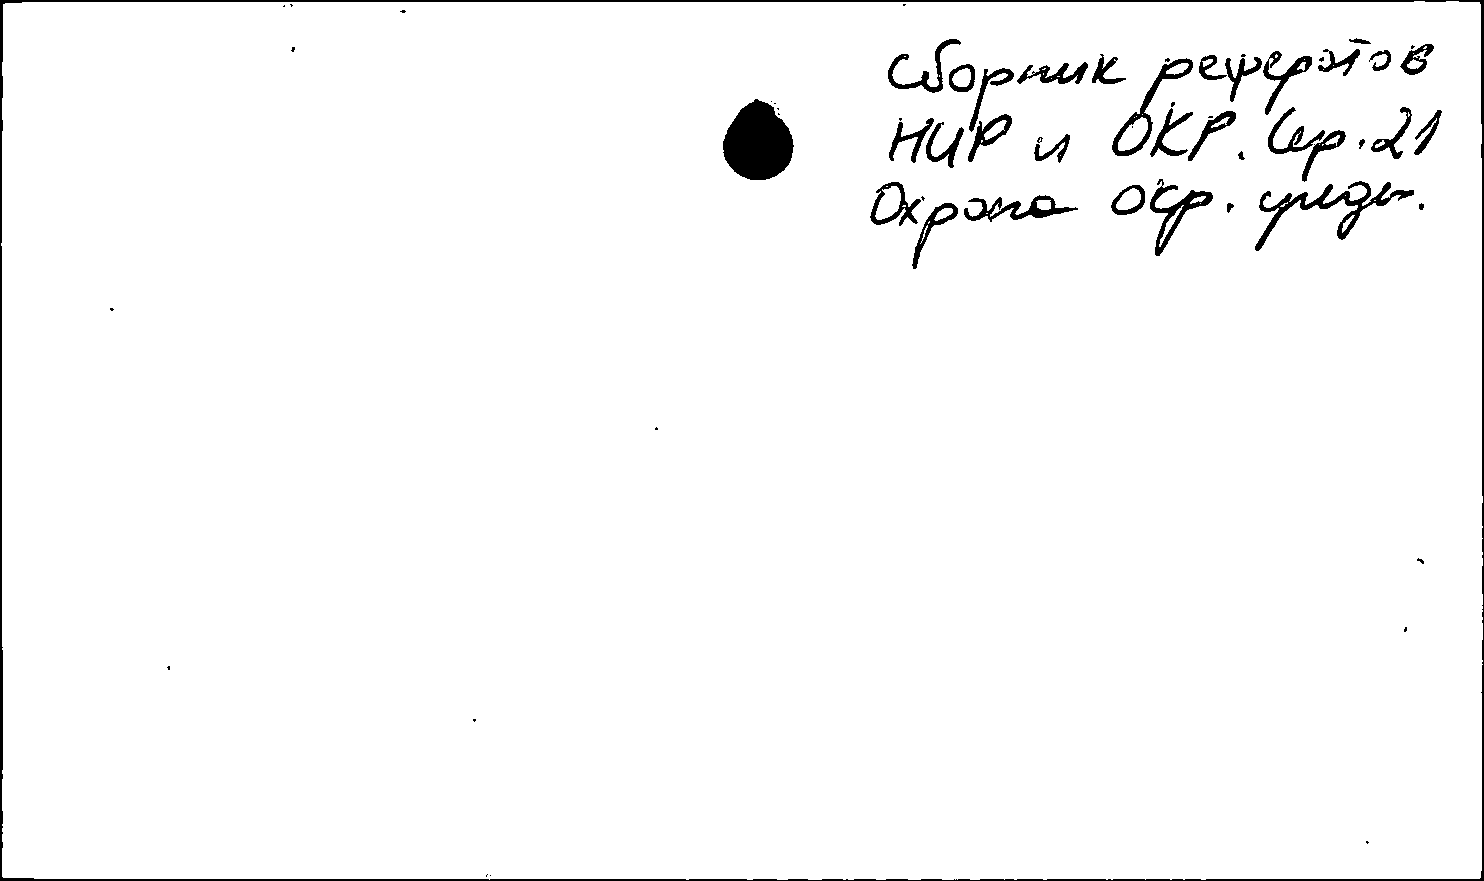 Сборник рефератов
НИР и ОКР. Сер. 21
Охрана окр. среды.